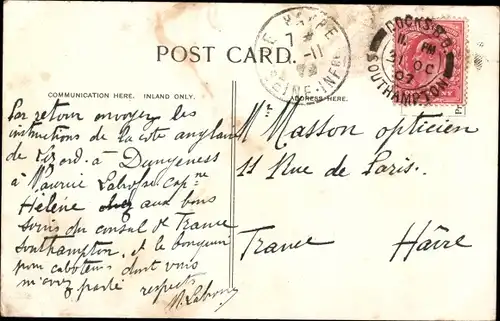 POST CARD.
COMMUNICATION HERE. INLAND ONLY.
ADDRESS HERE.
LE HAVRE
7
11
SEINE-INFRE
DOCKS B.O.
11 PM
31 OC
07
SOUTHAMPTON
Par retour envoyez les
instructions de la cote anglaise
de Lizard à Dungeness
à Maurice Cap.ne
Hélène aux bons
soins du consul de France
Southampton, et le bouquin
pour caboteurs dont vous
m'avez parlé respects
Mr Masson opticien
11 Rue de Paris.
France Hâvre